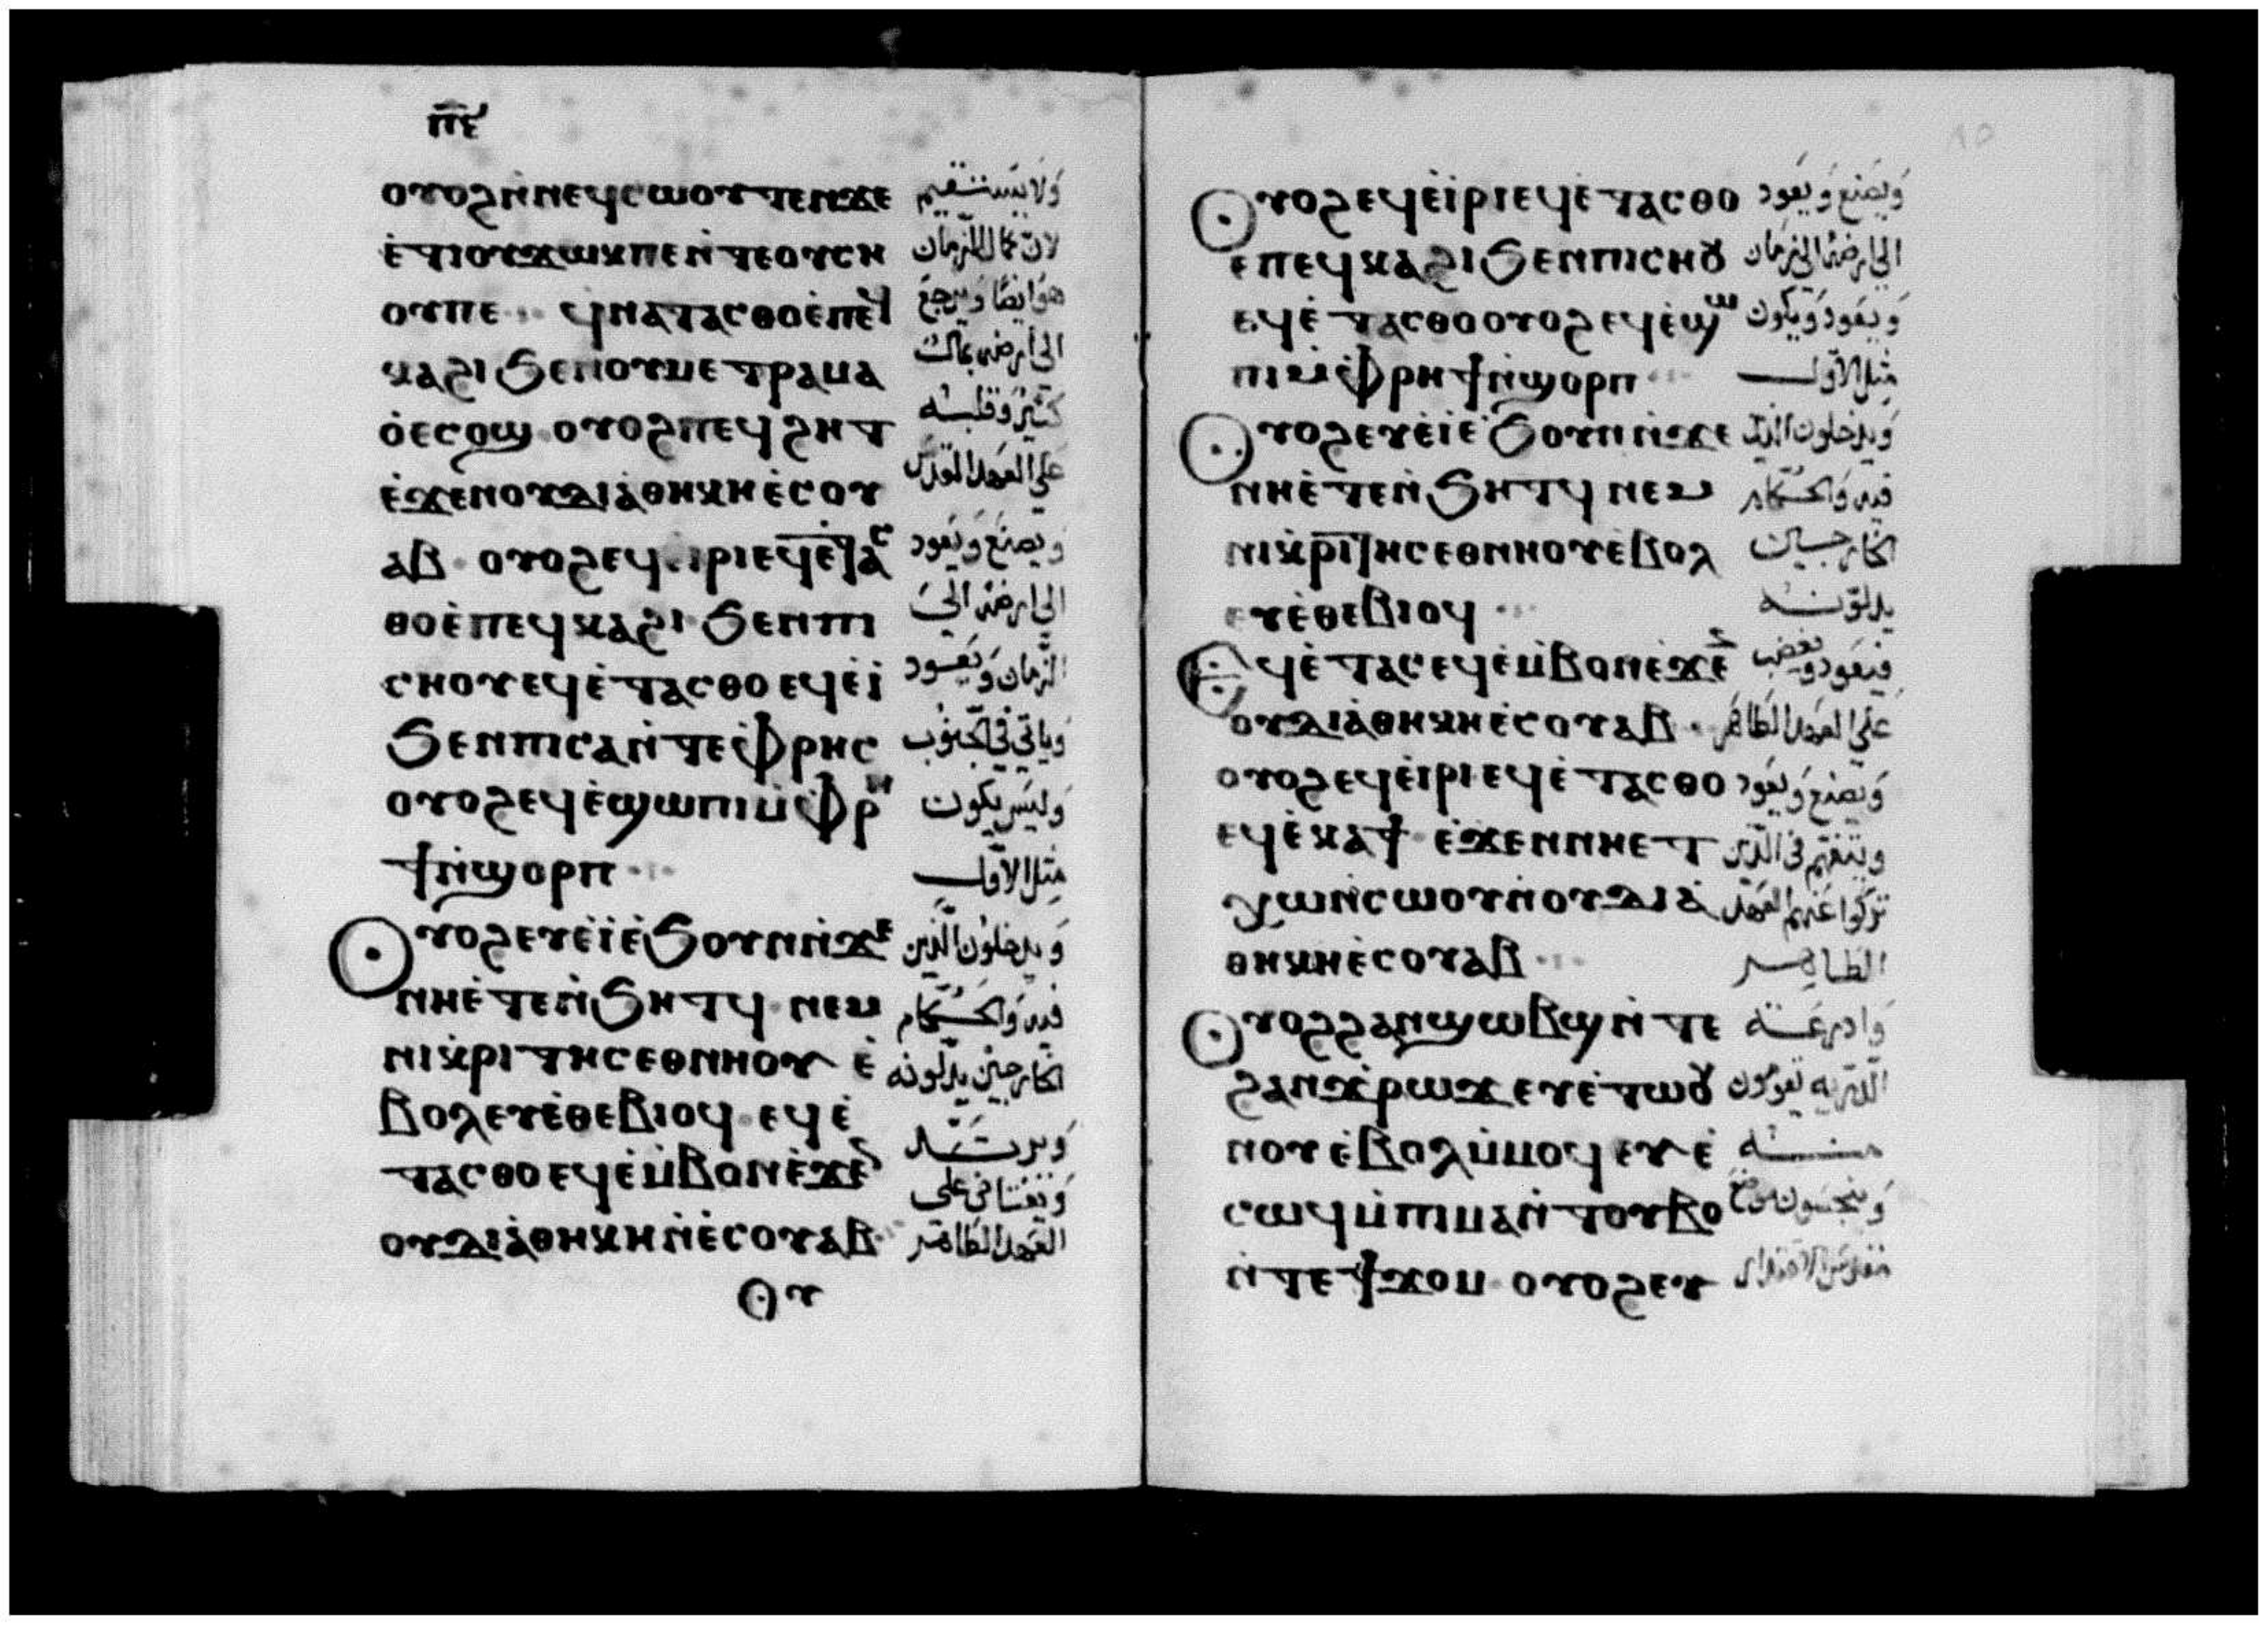 ⲡ̅ⲉ̅
ⲟⲩⲟϩⲛ̀ⲛⲉϥⲥⲱⲟⲩⲧⲉⲛϫⲉ ولا يستقيم
ⲉ̀ⲧⲓⲟⲩϫⲱⲕⲡⲉⲛ̀ⲧⲉⲟⲩⲥⲏ لان كمال الزمان
ⲟⲩⲡⲉ ϥⲛⲁⲧⲁⲥⲑⲟⲉ̀ⲡⲉϥ هوايضًا ويرجع
ⲕⲁϩⲓϧⲉⲛⲟⲩⲙⲉⲧⲣⲁⲙⲁ الى ارضه بمال
ⲟ̀ⲉⲥⲟϣ ⲟⲩⲟϩⲡⲉϥϩⲏⲧ كثير وقلبه
ⲉ̀ϫⲉⲛⲟⲩⲇⲓⲁ̀ⲑⲏⲕⲏⲉ̀ⲥⲟⲩ على العهد المقدس
ⲁⲃ ⲟⲩⲟϩⲉϥⲓⲣⲓⲉϥⲉ̀ⲧⲁⲥ ويصنع ويعود
ⲑⲟⲉ̀ⲡⲉϥⲕⲁϩⲓ ϧⲉⲛⲡⲓ الى ارضه الى
ⲥⲛⲟⲩⲉϥⲉ̀ⲧⲁⲥⲑⲟⲉϥⲉ̀ⲓ الزمان ويعود
ϧⲉⲛⲡⲓⲥⲁⲛ̀ⲧⲉⲫⲣⲏⲥ وياتي في الجنوب
ⲟⲩⲟϩⲉϥⲉ̀ϣⲱⲡⲓⲙ̀ⲫⲣⲏ وليس يكون
ϯⲛ̀ϣⲟⲣⲡ مثل الاول
ⲟⲩⲟϩⲉⲩⲉ̀ⲓⲉ̀ϧⲟⲩⲛⲛ̀ϫⲉ ويدخلون الذين
ⲛⲏⲉ̀ⲧⲉⲛ̀ϧⲏⲧϥ ⲛⲉⲙ فيه والحكام
ⲛⲓⲕ̀ⲣⲓⲧⲏⲥⲉⲑⲛⲏⲟⲩ ⲉ̀ الخارجين يدلونه
ⲃⲟⲗⲉⲩⲉ̀ⲑⲉⲃⲓⲟϥ ⲉϥⲉ̀
ⲧⲁⲥⲑⲟⲉϥⲉ̀ⲙ̀ⲃⲟⲛⲉ̀ϫⲉⲛ
ⲟⲩⲇⲓⲁ̀ⲑⲏⲕⲏⲛ̀ⲉ̀ⲥⲟⲩⲁⲃ العهد الطاهر
ⲟⲩ
ⲟⲩⲟϩⲉϥⲉ̀ⲓⲣⲓⲉϥⲉ̀ⲧⲁⲥⲑⲟ ويصنع ويعود
ⲉⲡⲉϥⲕⲁϩⲓϧⲉⲛⲡⲓⲥⲛⲟⲩ الى ارضه الى زمان
ⲉϥⲉ̀ⲧⲁⲥⲑⲟⲟⲩⲟϩⲉϥⲉ̀ϣⲱ ويعود ويكون
ⲡⲓⲙ̀ⲫⲣⲏϯⲛ̀ϣⲟⲣⲡ مثل الاول
ⲟⲩⲟϩⲉⲩⲉ̀ⲓⲉ̀ϧⲟⲩⲛⲛ̀ϫⲉ ويدخلون الذين
ⲛⲏⲉ̀ⲧⲉⲛ̀ϧⲏⲧϥ ⲛⲉⲙ فيه والحكام
ⲛⲓⲕ̀ⲣⲓⲧⲏⲥⲉⲑⲛⲏⲟⲩⲉⲃⲟⲗ الخارجين
ⲉⲩⲉ̀ⲑⲉⲃⲓⲟϥ يدلونه
ⲉϥⲉ̀ⲧⲁⲥⲉϥⲉ̀ⲙ̀ⲃⲟⲛⲉ̀ϫⲉⲛ فيعود ويغضب
ⲟⲩⲇⲓⲁ̀ⲑⲏⲕⲏⲉ̀ⲥⲟⲩⲁⲃ على العهد الطاهر
ⲟⲩⲟϩⲉϥⲉ̀ⲓⲣⲓⲉϥⲉ̀ⲧⲁⲥⲑⲟ ويصنع ويعود
ⲉϥⲉ̀ⲕⲁϯ ⲉ̀ϫⲉⲛⲛⲏⲉⲧ ويتفهم في الذين
ⲭⲱⲛ̀ⲥⲱⲟⲩⲛ̀ⲟⲩⲇⲓⲁ̀ تركوا عنهم العهد
ⲑⲏⲕⲏⲉ̀ⲥⲟⲩⲁⲃ الطاهر
ⲟⲩⲟϩϩⲁⲛϣⲱⲃϣⲛ̀ⲧⲉ وادرعة
ϩⲁⲛϫ̀ⲣⲱϫⲉⲩⲉ̀ⲧⲱⲟⲩ الذرية يقومون
ⲛⲟⲩⲉ̀ⲃⲟⲗⲙ̀ⲙⲟϥⲉⲩⲉ̀ منه
ⲥⲱϥⲙ̀ⲡⲓⲙⲁⲛ̀ⲧⲟⲩⲃⲟ وينجسون موضع
ⲛ̀ⲧⲉϯϫⲟⲙ ⲟⲩⲟϩⲉⲩ